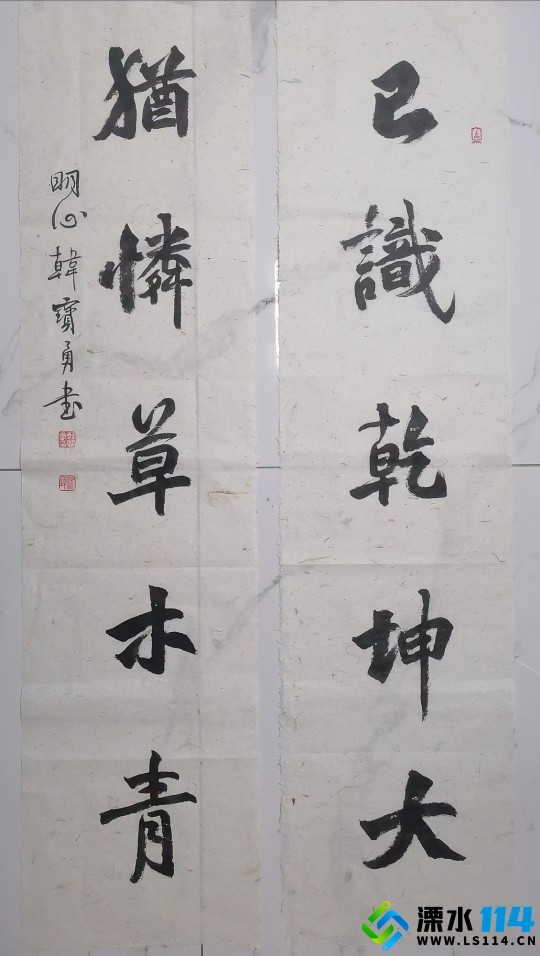 已識乾坤大
猶憐草木青
明心韓寶勇书
溧水114
WWW.LS114.CN